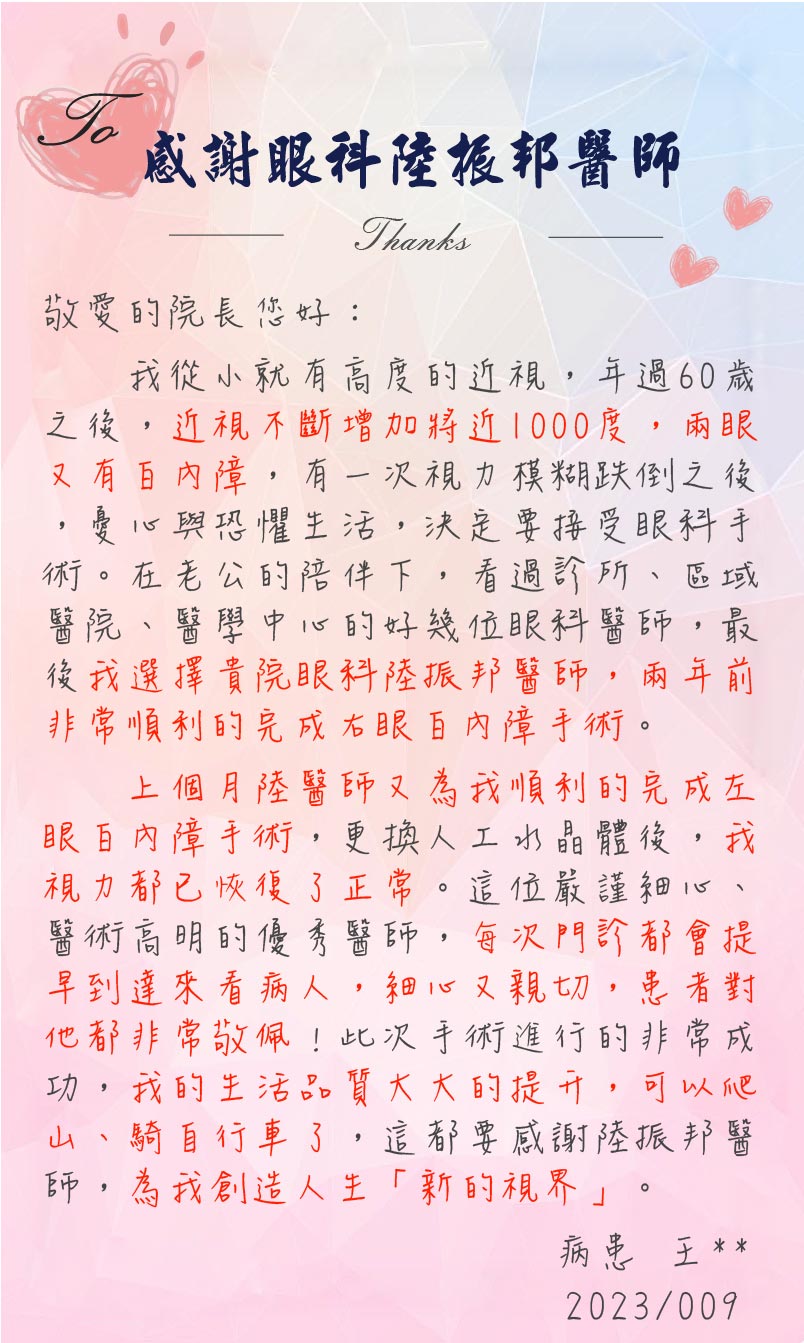 To
感謝眼科陸振邦醫師
Thanks
敬愛的院長您好：
我從小就有高度的近視，年過60歲
之後，近視不斷增加將近1000度，兩眼
又有白內障，有一次視力模糊跌倒之後
，憂心與恐懼生活，決定要接受眼科手
術。在老公的陪伴下，看過診所、區域
醫院、醫學中心的好幾位眼科醫師，最
後我選擇貴院眼科陸振邦醫師，兩年前
非常順利的完成右眼白內障手術。
上個月陸醫師又為我順利的完成左
眼白內障手術，更換人工水晶體後，我
視力都已恢復了正常。這位嚴謹細心、
醫術高明的優秀醫師，每次門診都會提
早到達來看病人，細心又親切，患者對
他都非常敬佩！此次手術進行的非常成
功，我的生活品質大大的提升，可以爬
山、騎自行車了，這都要感謝陸振邦醫
師，為我創造人生「新的視界」。
病患 王**
2023/009